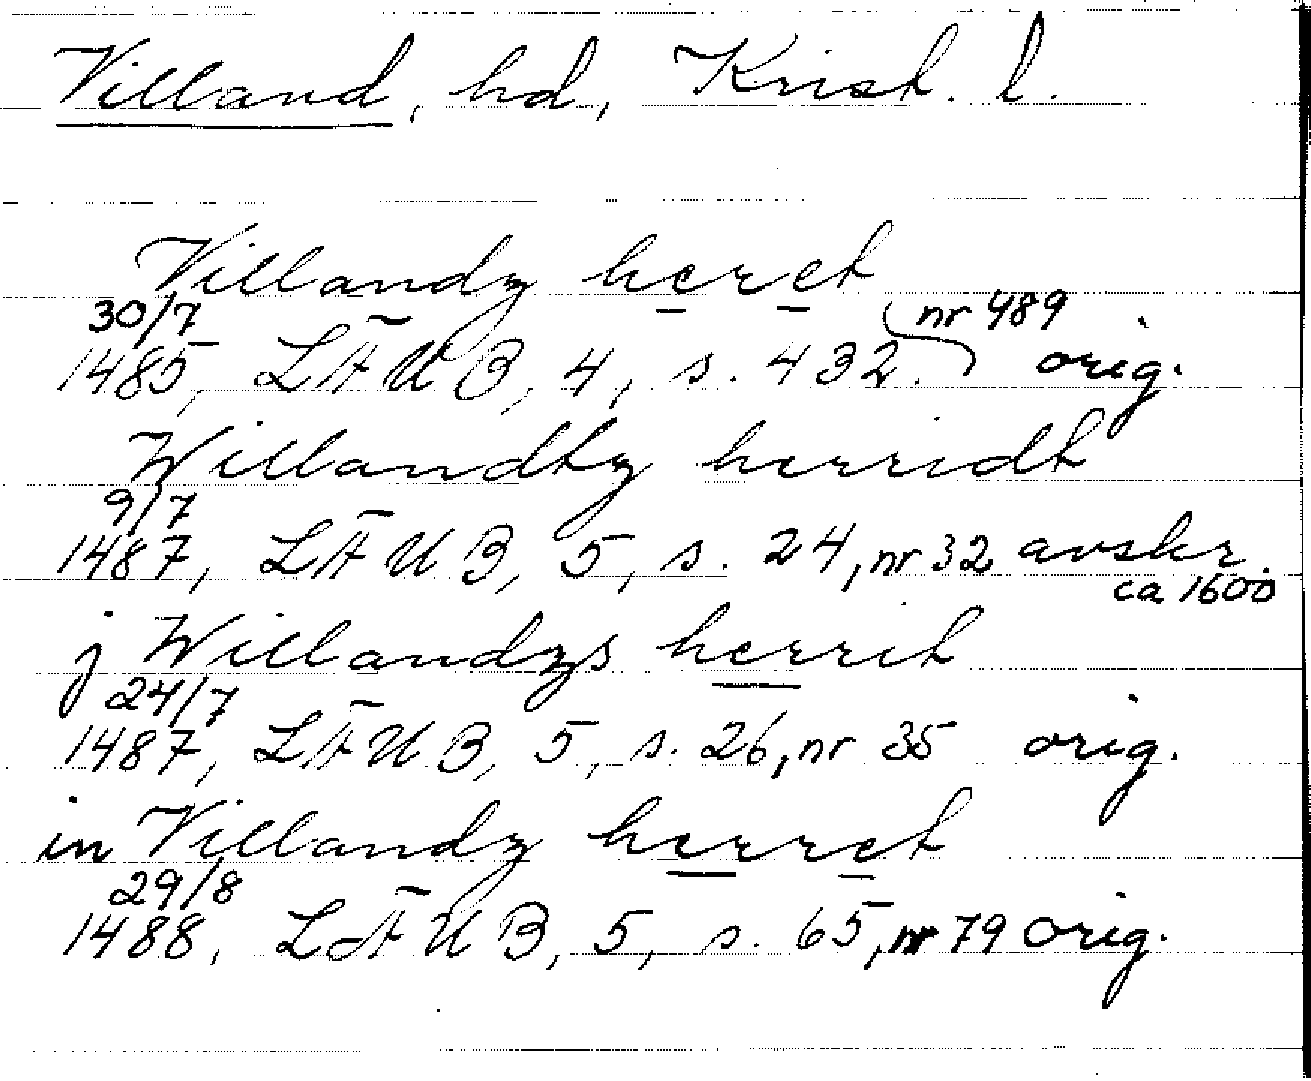 Villand, hd, Krist. l.
Villandz heret
30/7
nr 489
1485, LÄUB, 4, s. 432. orig.
Willandtz herridt
9/7
1487, LÄUB, 5, s. 24, nr 32 avskr.
ca 1600
j Willandzs herrit
24/7
1487, LÄUB, 5, s. 26, nr 35 orig.
in Villandz herret
29/8
1488, LÄUB, 5, s. 65, nr 79 orig.